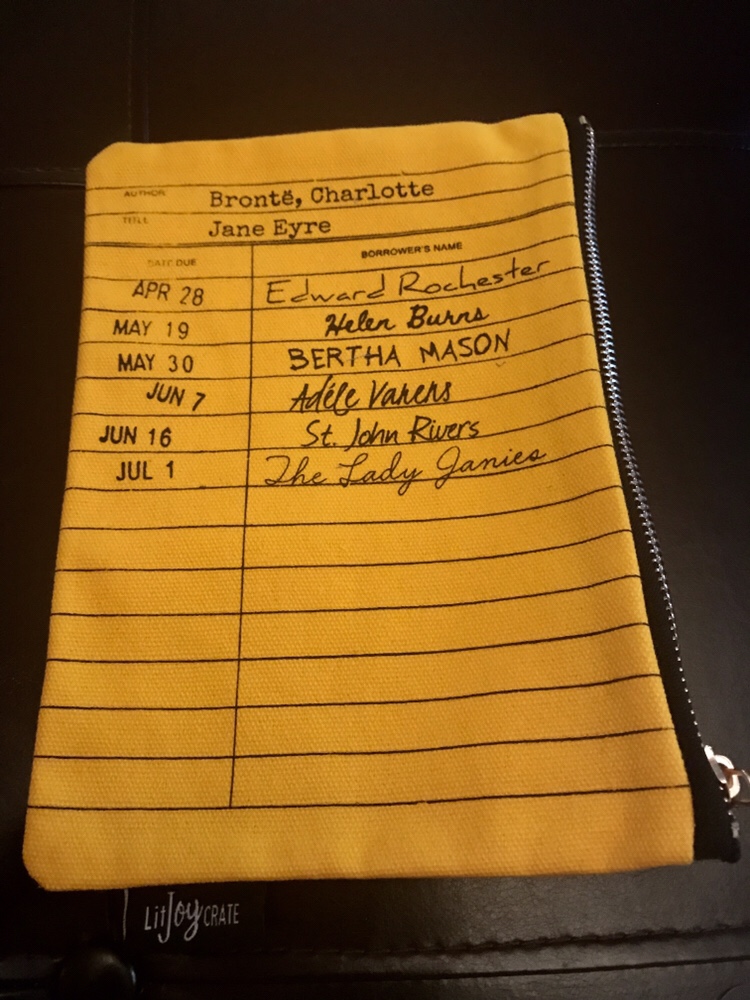 AUTHOR Brontë, Charlotte
TITLE Jane Eyre
DATE DUE BORROWER'S NAME
APR 28 Edward Rochester
MAY 19 Helen Burns
MAY 30 BERTHA MASON
JUN 7 Adéle Varens
JUN 16 St. John Rivers
JUL 1 The Lady Janies
LitJoy CRATE